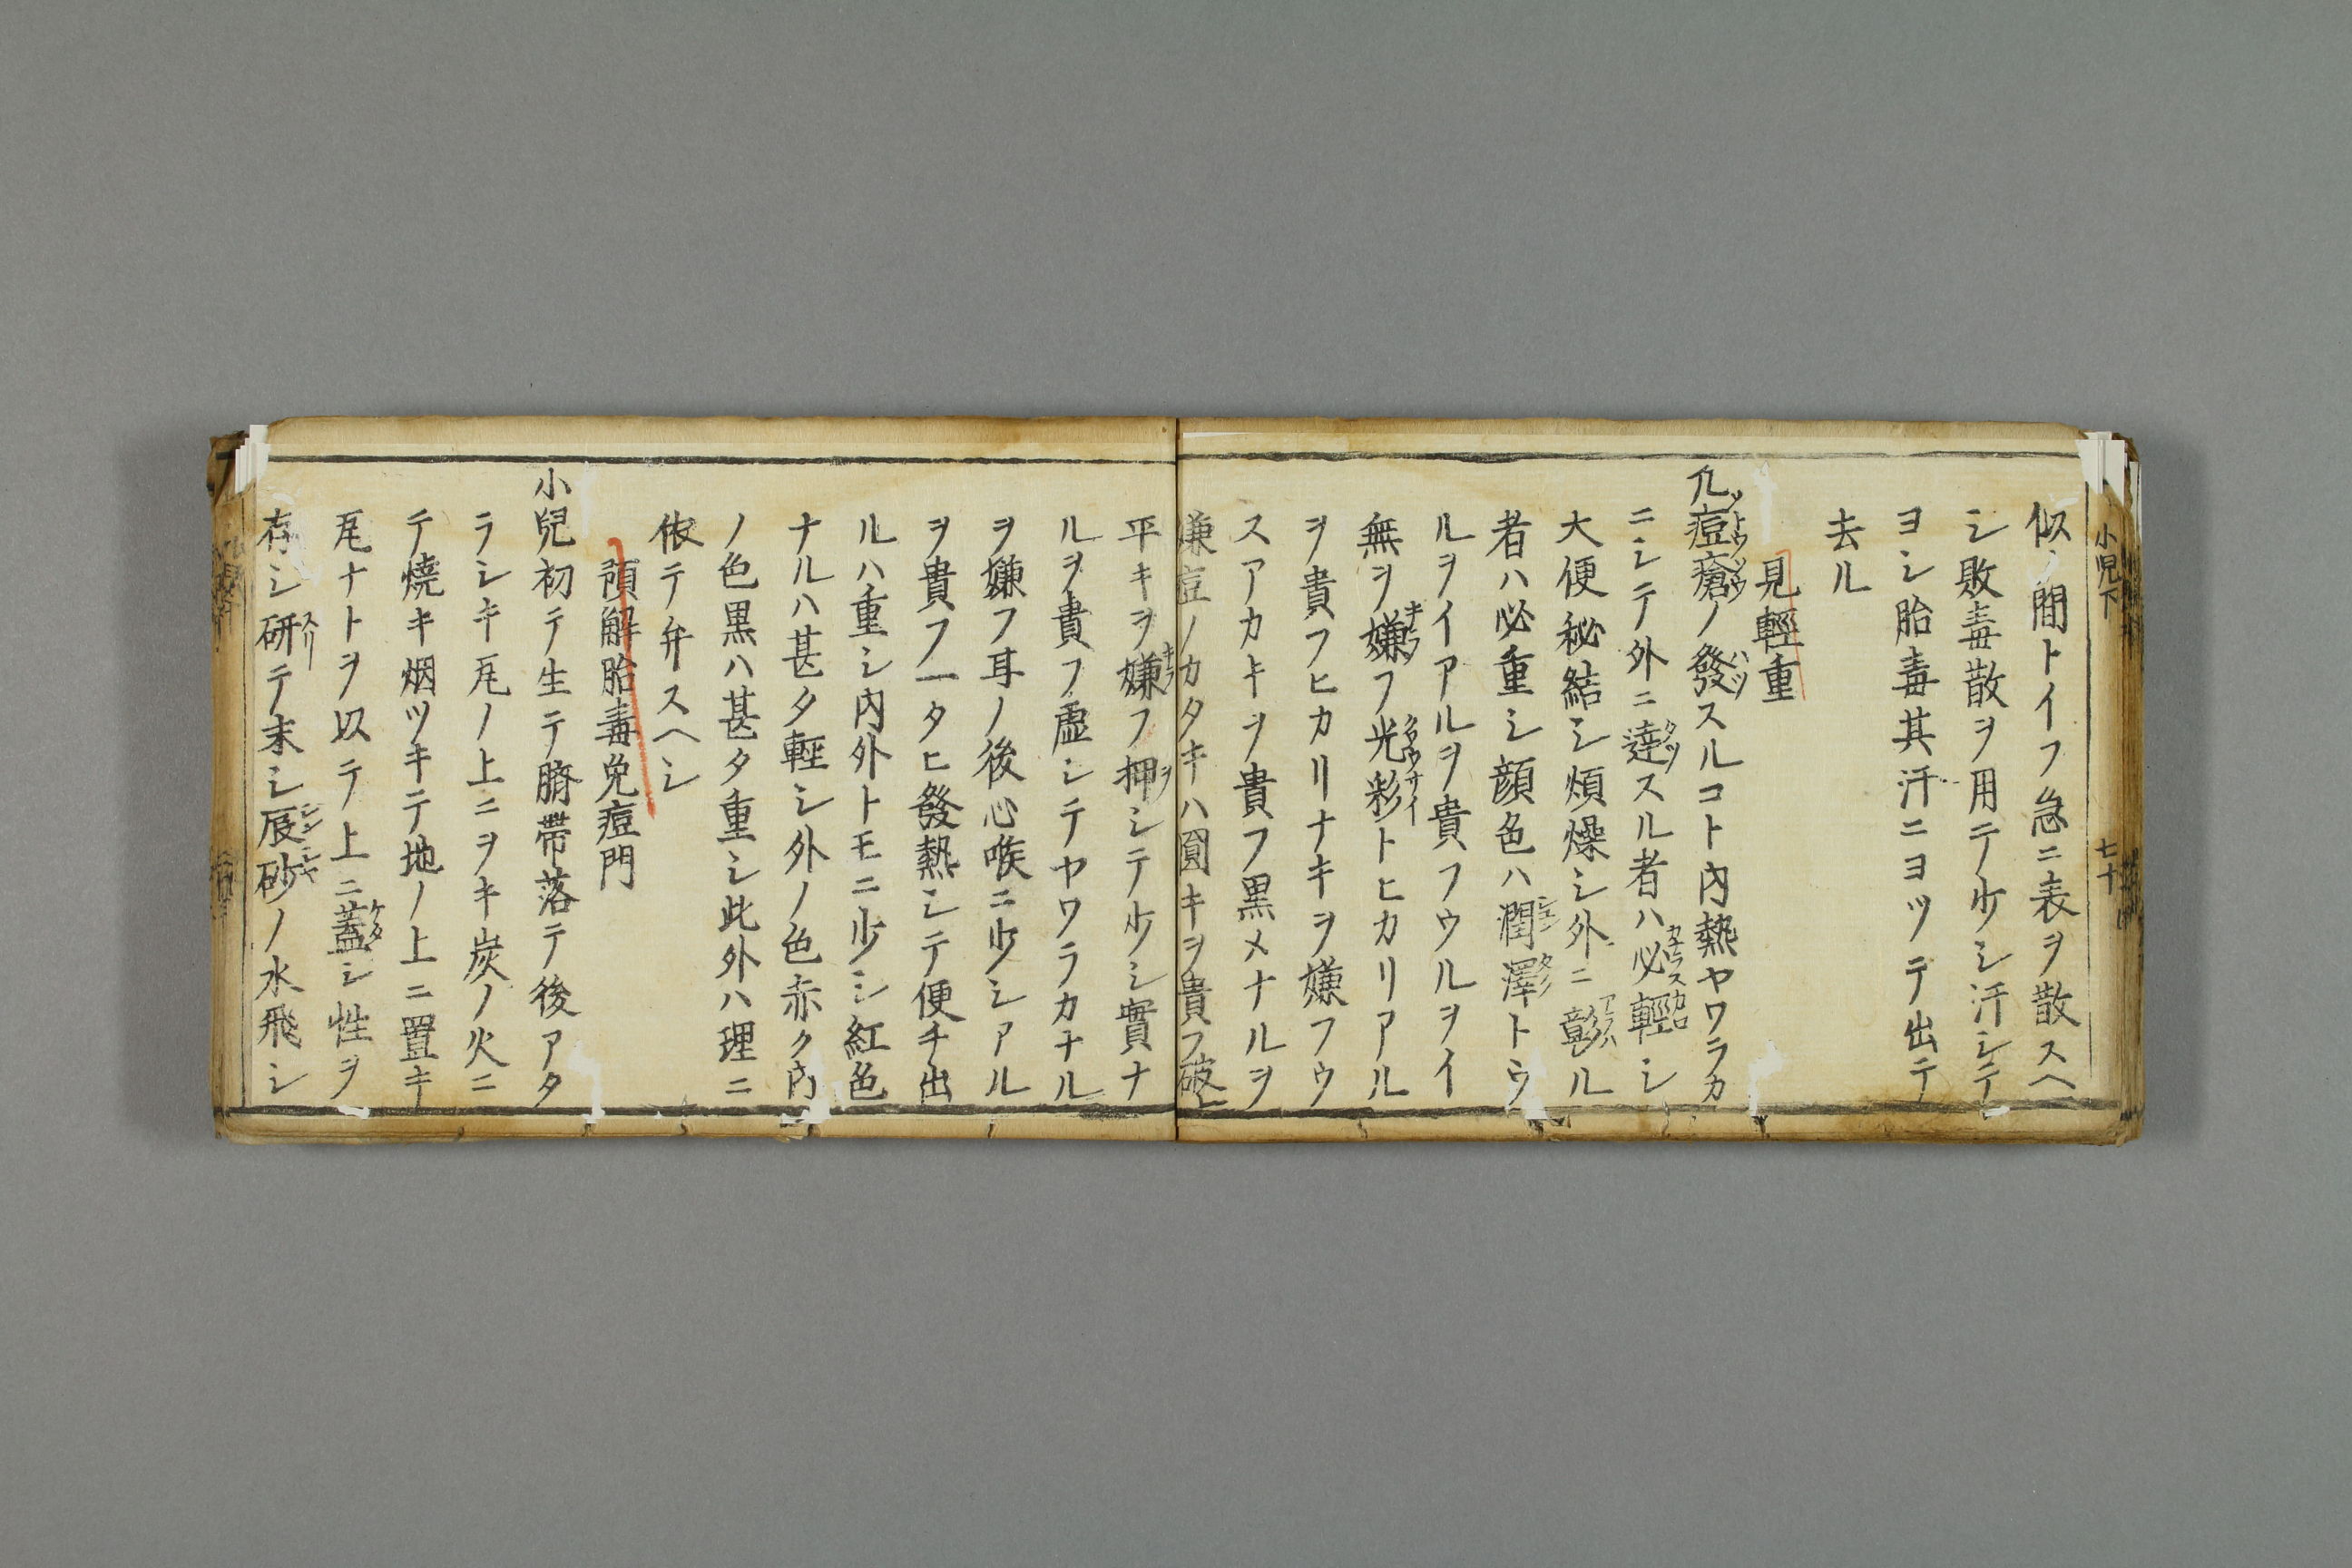 小児下
七十
似ノ間トイフ急ニ表ヲ散スヘ
シ敗毒散ヲ用テ少シ汗シテ
ヨシ胎毒其汗ニヨツテ出テ
去ル
見輕重
凢痘瘡ノ發スルコト内熱ヤワラカ
ニシテ外ニ達スル者ハ必輕シ
大便秘結シ煩燥シ外ニ彰ル
者ハ必重シ顔色ハ潤澤トウ
ルヲイアルヲ貴フウルヲイ
無ヲ嫌フ光彩トヒカリアル
ヲ貴フヒカリナキヲ嫌フウ
スアカキヲ貴フ黒メナルヲ
嫌豆ノカタキハ圓キヲ貴フ破レ
平キヲ嫌フ押シテ少シ實ナ
ルヲ貴フ虚シテヤワラカナル
ヲ嫌フ耳ノ後心喉ニ少シアル
ヲ貴フ一タヒ發熱シテ便チ出
ルハ重シ内外トモニ少シ紅色
ナルハ甚タ輕シ外ノ色赤ク内
ノ色黒ハ甚タ重シ此外ハ理ニ
依テ弁スヘシ
預解胎毒免痘門
小兒初テ生テ臍帶落テ後アタ
ラシキ瓦ノ上ニヲキ炭ノ火ニ
テ燒キ烟ツキテ地ノ上ニ置キ
瓦ナトヲ以テ上ニ蓋シ性ヲ
存シ研テ末シ辰砂ノ水飛シ